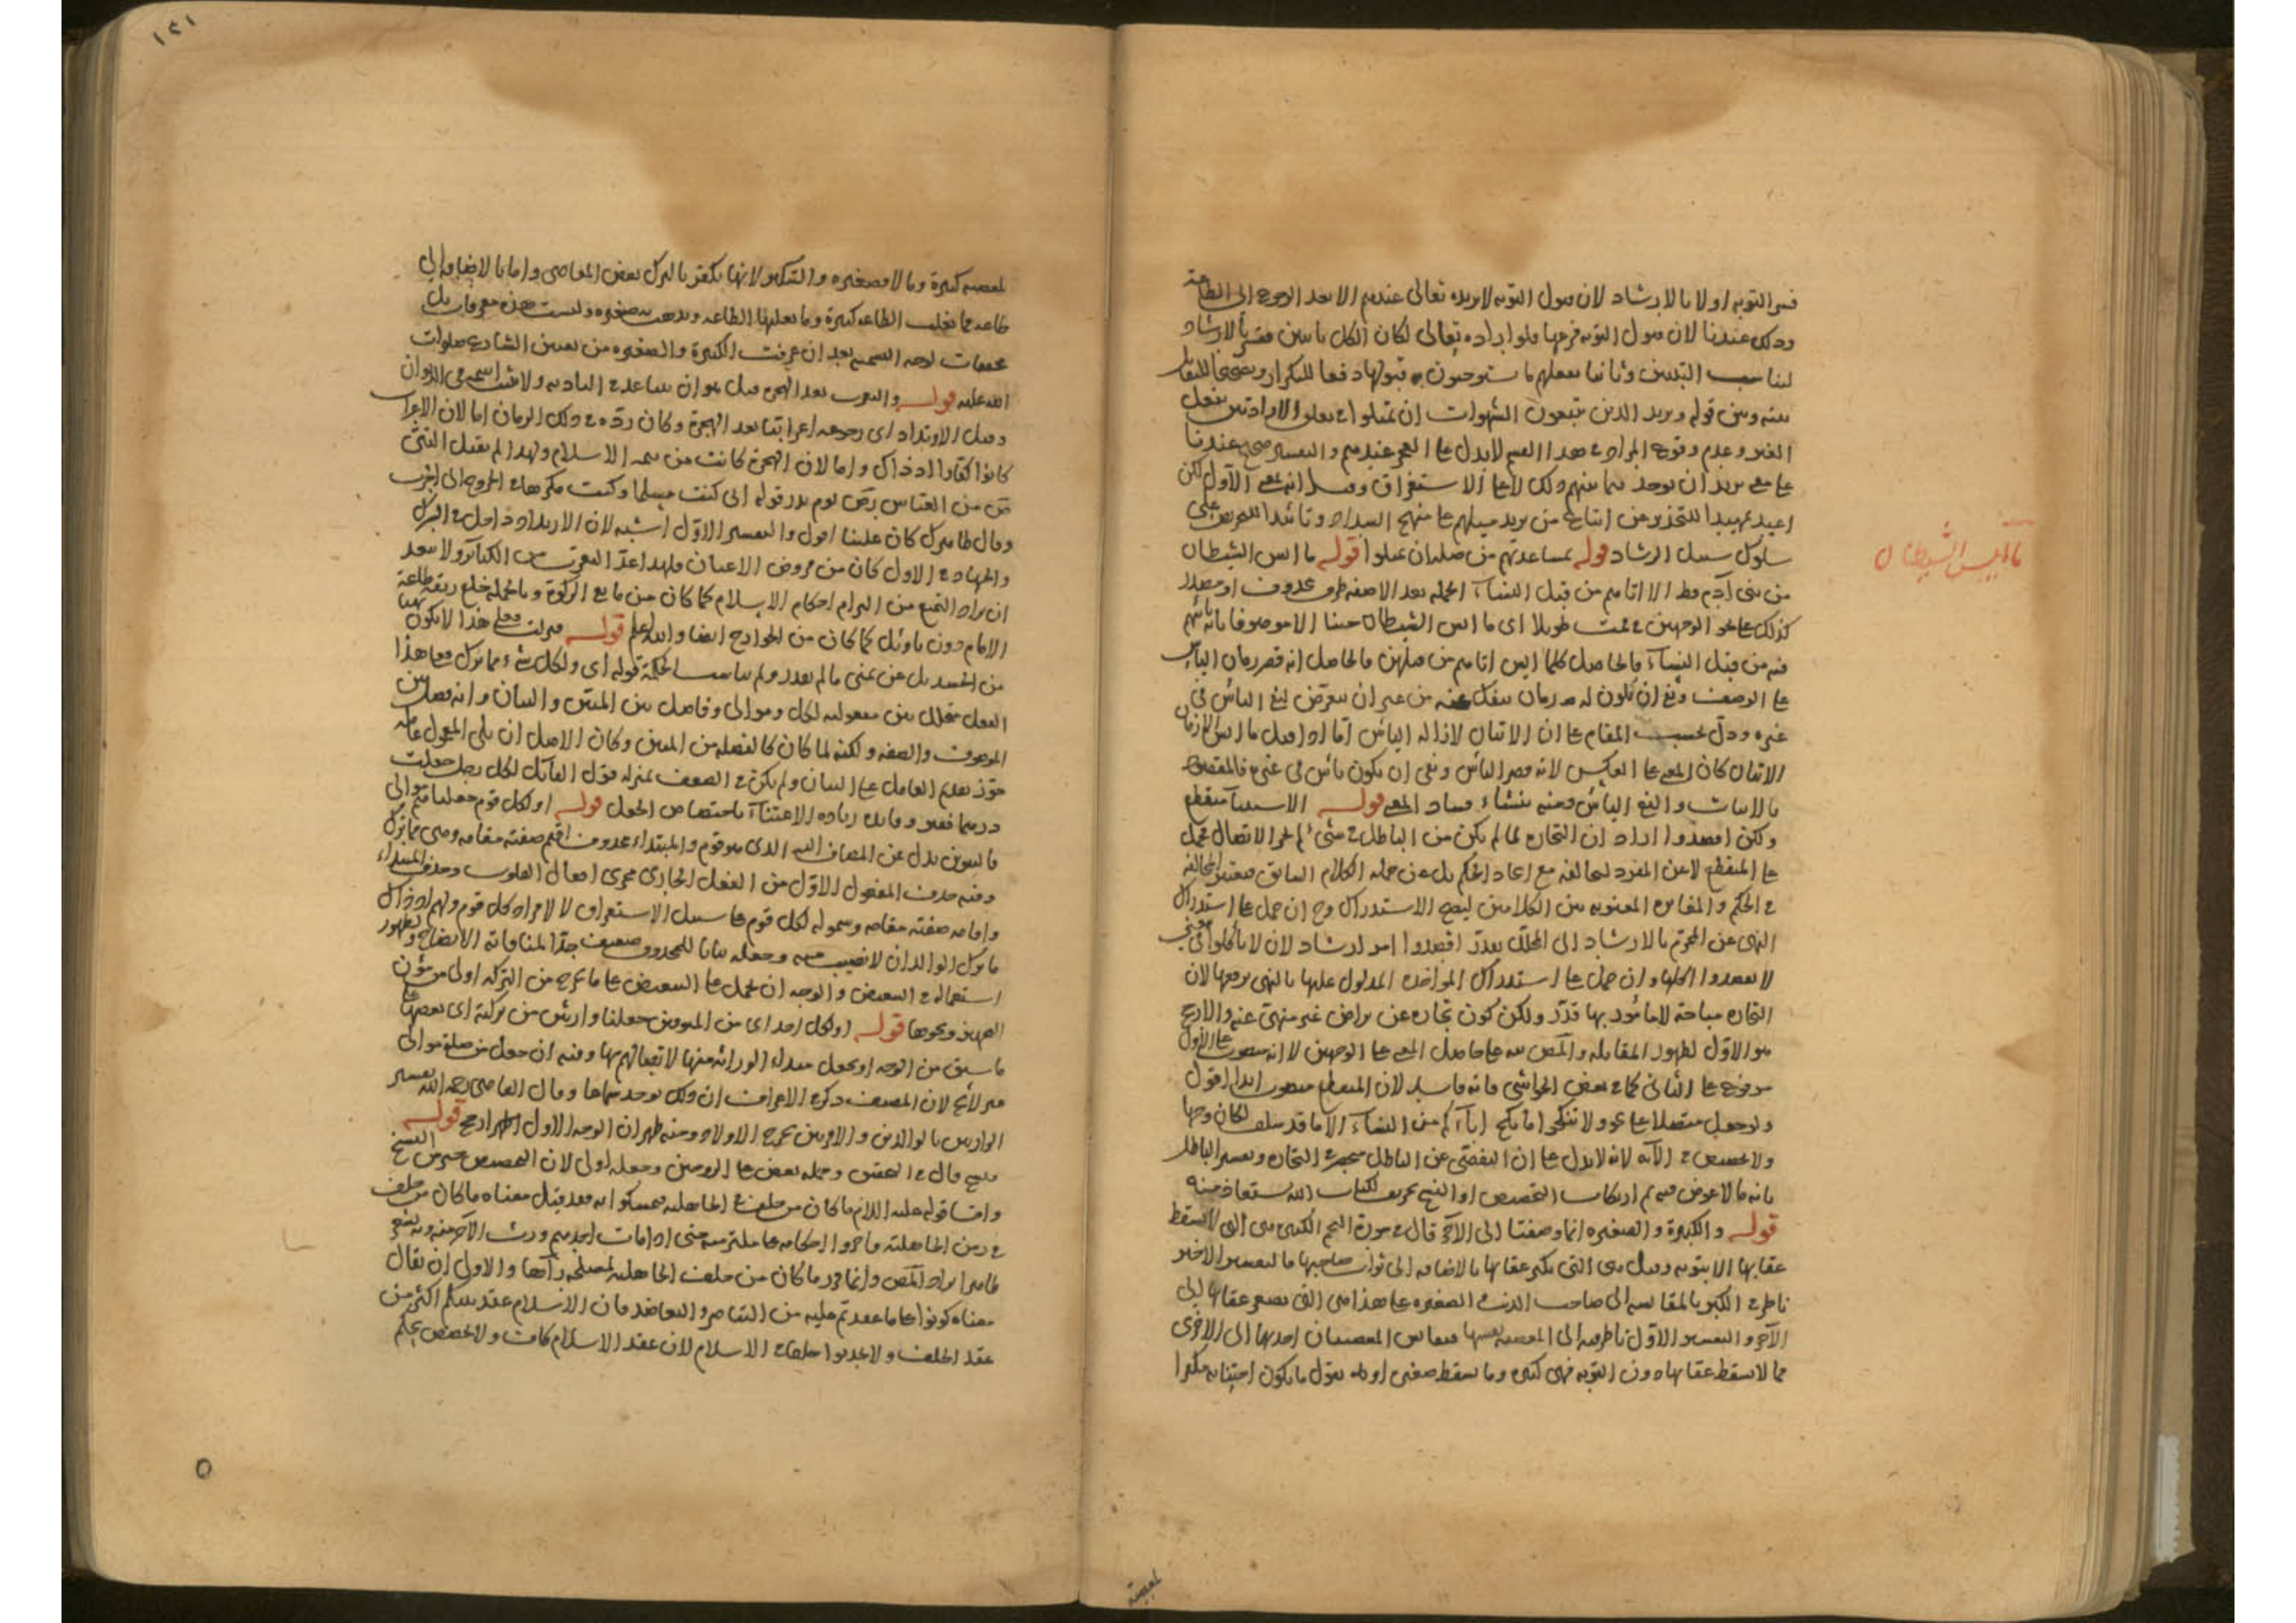 فسر التوبة اولا بالارشاد لان قبول التوبة لا يريده تعالى عندهم الا بعد الرجوع الى الطاعة
وذلك عندنا لان قبول التوبة فرعها ولو اراده تعالى لكان الكل تائبين ففسر بالارشاد
ليناسب التبيين وثانيا بفعلهم ما يستوجبون به قبولها دفعا للتكرار وتصحيحا للتقابل
بينه وبين قوله ويريد الذين يتبعون الشهوات ان تميلوا
الغير وعدم وقوع المراد في هذا القسم لا يدل على العجز عندهم والتفسير صحيح عندنا
على معنى يريد ان يوجد فيما بينهم ذلك لا على الاستغراق وقيل انه بمعنى الاول لكن
اعيد تمهيدا للتحذير عن اتباع من يريد ميلهم عن منهج السداد وتأكيدا للحرص على
سلوك سبيل الرشاد قوله بمساعدتهم من صلة ان تميلوا قوله ما ايس الشيطان
من بني آدم قط الا اتاهم من قبل النساء الجملة بعد الا صفة ظرف محذوف او مصدر
كذلك على نحو الوجهين في نمت طويلا اى ما ايس الشيطان حينا الا موصوفا بانه ياتيهم
فيه من قبل النساء فالحاصل كلما ايس اتاهم من قبلهن فالحاصل انه قصر زمان الياس
على الوصف ونفى ان يكون له زمان ينفك عنه من غير ان يتعرض لنفي الياس في
غيره ودل بحسب المقام على ان الاتيان لازالة الياس اما اذا قيل ما ايس الا زمان
الاتيان كان المعنى على العكس لانه قصر الياس ونفى ان يكون ياس في غيره فالمقصود
بالاثبات والنفي الياس ومنه ينشاء فساد المعنى قوله الاستثناء منقطع
ولكن اقصدوا اراد ان التجارة لما لم يكن من الباطل في شيء لم يجز الاتصال فحمل
على المنقطع لا عن المفرد لمخالفه مع اتحاد الحكم بل عن جملة الكلام السابق فيعتبر المخالفة
في الحكم والمغايرة المعنوية بين الكلامين ليصح الاستدراك وح ان حمل على استدراك
النهى عن المحرم بالارشاد الى المحلل يقدر اقصدوا امر ارشاد لان لا تأكلوا في معنى
لا تقصدوا اكلها وان حمل على استدراك المؤاخذة المدلول عليها بالنهى يرفعها لان
التجارة مباحة لا مأمور بها قدر ولكن كون تجارة عن تراض غير منهى عنه والارجح
هو الاول لظهور المقابلة والمص نبه على حاصل المعنى على الوجهين لا انه منصوب على الاول
مرفوع على الثاني كما في بعض الحواشي فانه فاسد لان المنقطع منصوب ابدا اقول
ولو جعل متصلا على نحو ولا تنكحوا ما نكح آباؤكم من النساء الا ما قد سلف لكان وجها
ولا تخصيص في الآية لانه لا يدل على ان التفصى عن الباطل منحصر في التجارة وتفسير الباطل
بانه ما لا عوض فيه ثم ارتكاب التخصيص او النسخ تحريف لكتاب الله يستعاذ منه
قوله والكبيرة والصغيرة انما وصفتا الى الآخر قال في سورة النجم الكبيرة هي التي لا يسقط
عقابها الا بتوبة وقيل هي التي يكبر عقابها بالاضافة الى ثواب صاحبها فالتفسير الاخير
ناظر في الكبر بالمقايسة الى صاحب الذنب الصغيرة على هذا هي التي يصغر عقابها الى
الآخر والتفسير الاول ناظر فيه الى المعصية نفسها فيقاس المعصيتان احديهما الى الاخرى
فما لا يسقط عقابها دون التوبة فهى كبيرة وما يسقط صغيرة او نقول ما يكون اجتنابه مكفرا
ما ايس الشيطان
لمعصية
١٢١
لمعصية كبيرة وما لا فصغيره والتكفير لانها يكفر بالترك بعض المعاصى واما بالاضافة الى
طاعة فما يغلب الطاعة كبيرة وما يغلبها الطاعة صغيره وليست هذه معرفات بل
محققات لوجه التسمية بعد ان عرفت الكبيرة والصغيرة من تعيين الشارع صلوات
الله عليه قوله والتعرب بعد الهجرة قيل هو ان يتباعد في البادية ولا يثبت اسمه في الديوان
وقيل الارتداد اى رجوعه اعرابيا بعد الهجرة وكان رده في ذلك الزمان اما لان الاعراب
كانوا كفارا اذ ذاك واما لان الهجرة كانت من تتمة الاسلام ولهذا لم يقبل النبى
ص من العباس رض يوم بدر قوله انى كنت مسلما وكنت مكرها في الخروج الى الحرب
وقال ظاهرك كان علينا اقول والتفسير الاول اشبه لان الارتداد داخل في الشرك
والجهاد في الاول كان من فروض الاعيان فلهذا عد التعرب من الكبائر ولا يبعد
ان يراد التمنع من التزام احكام الاسلام كما كان من مانع الزكوة وبالجملة خلع ربقة طاعة
الامام دون تاويل كما كان من الخوارج ايضا والله اعلم قوله فعلى هذا لا يكون نهيا
من الحسد بل عن تمنى ما لم يقدر ولم يناسب الحكمة قوله اى ولكل شيء مما ترك فعلى هذا
الفعل متخلل بين معمولية لكل وموالى وفاصل بين المبين والبيان وانه فصل بين
الموصوف والصفة ولكنه لما كان كالفضلة من المبين وكان الاصل ان يلى المعمول عامله
جوز تقديم العامل على البيان ولم يكن في الضعف بمنزلة قول القائل لكل رجل جعلت
درهما فقير وفائدة زيادة الاعتناء باختصاص الجعل قوله او لكل قوم جعلناهم موالى
فالتنوين بدل عن المضاف اليه الذى هو قوم والمبتداء محذوف اقيم صفته مقامه وهى مما ترك
وفيه حذف المفعول الاول من الفعل الجارى مجرى افعال القلوب وحذف المبتداء
واقامة صفته مقامه وشموله لكل قوم على سبيل الاستغراق لا لافراد كل قوم
ما ترك الوالدان لا نصيب منه وجعله بيانا للمحذوف ضعيف جدا
استعماله في التبعيض والوجه ان يحمل على التبعيض على ما يخرج من التركة اولى من مؤن
التجهيز ونحوها قوله او لكل احد اى من الميتين جعلنا وارثين من تركته اى بعضها على
ما سبق من الوجه او يجعل مبداء الوراثة منها لاتصالهم بها وفيه ان جعل من صلة موالى
غير لائح لان المصنف ذكر في الاعراف ان ذلك يوجد سماعا وقال القاضى رحمه الله تفسير
الوارثين بالوالدين والاقربين يخرج الاولاد ومنه ظهر ان الوجه الاول اظهر ارجح قوله
فنسخ وحمله بعض على الزوجين وجعله اولى لان التخصيص خير من النسخ
واما قوله عليه السلام ما كان من حلف في الجاهلية فتمسكوا به فقد قيل معناه ما كان من حلف
في زمن الجاهلية واجروا احكامها ملتزمين حتى اذا مات احدهم ورث الآخر منه
ظاهر ايراد المص وانما ما كان من حلف الجاهلية لمصلحة رآها والاولى ان يقال
معناه كونوا على ما عقدتم عليه من التناصر والتعاضد فان الاسلام عقد بينكم اكثر من
عقد الحلف ولا تحدثوا حلفا في الاسلام لان عقد الاسلام كاف ولا تخصيص بحكم